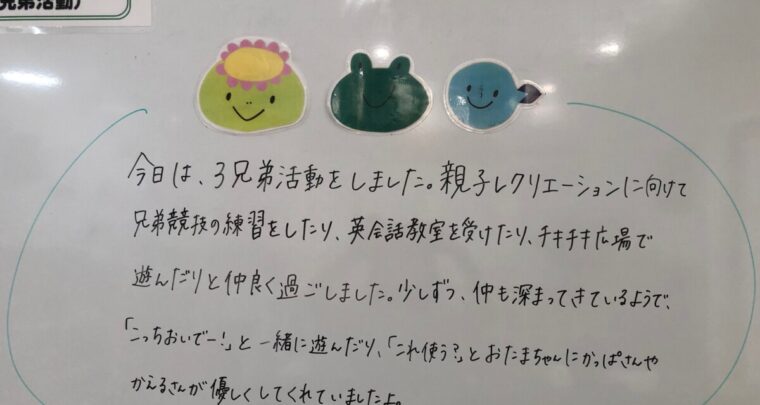 兄弟活動）
今日は、3兄弟活動をしました。親子レクリエーションに向けて
兄弟競技の練習をしたり、英会話教室を受けたり、チキチキ広場で
遊んだりと仲良く過ごしました。少しずつ、仲も深まってきているようで、
「こっちおいでー！」と一緒に遊んだり、「これ使う？」とおたまちゃんにかっぱさんや
かえるさんが優しくしてくれていましたよ。